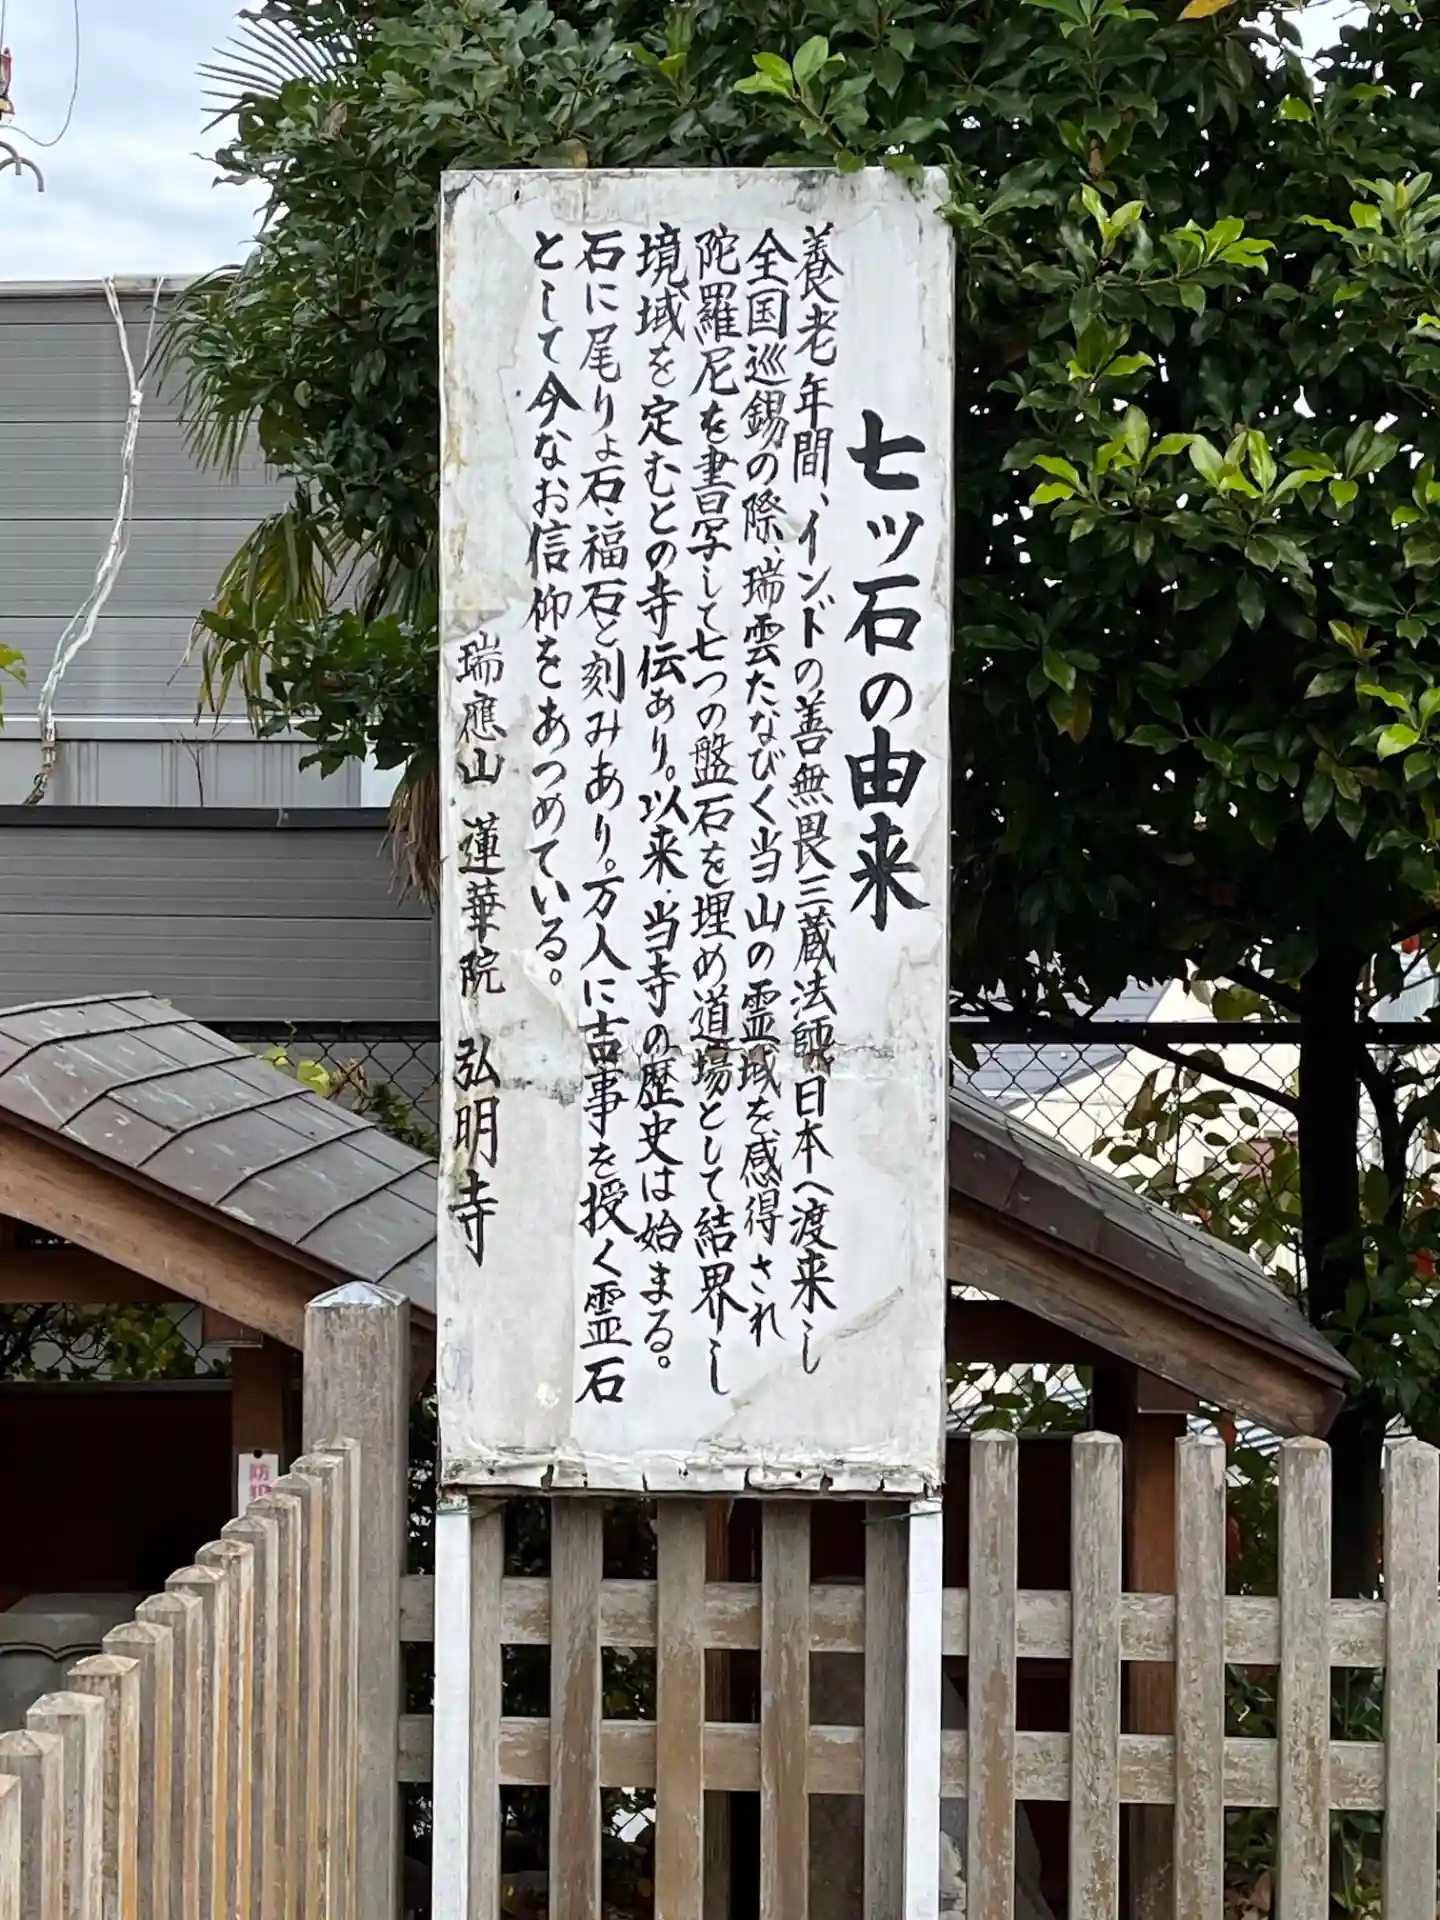 七ッ石の由来
養老年間、インドの善無畏三蔵法師、日本へ渡来し
全国巡錫の際、瑞雲たなびく当山の霊域を感得され
陀羅尼を書写して七つの盤石を埋め道場として結界し
境域を定むとの寺伝あり。以来、当寺の歴史は始まる。
石に尾りょ石、福石と刻みあり。万人に吉事を授く霊石
として今なお信仰をあつめている。
瑞應山 蓮華院 弘明寺